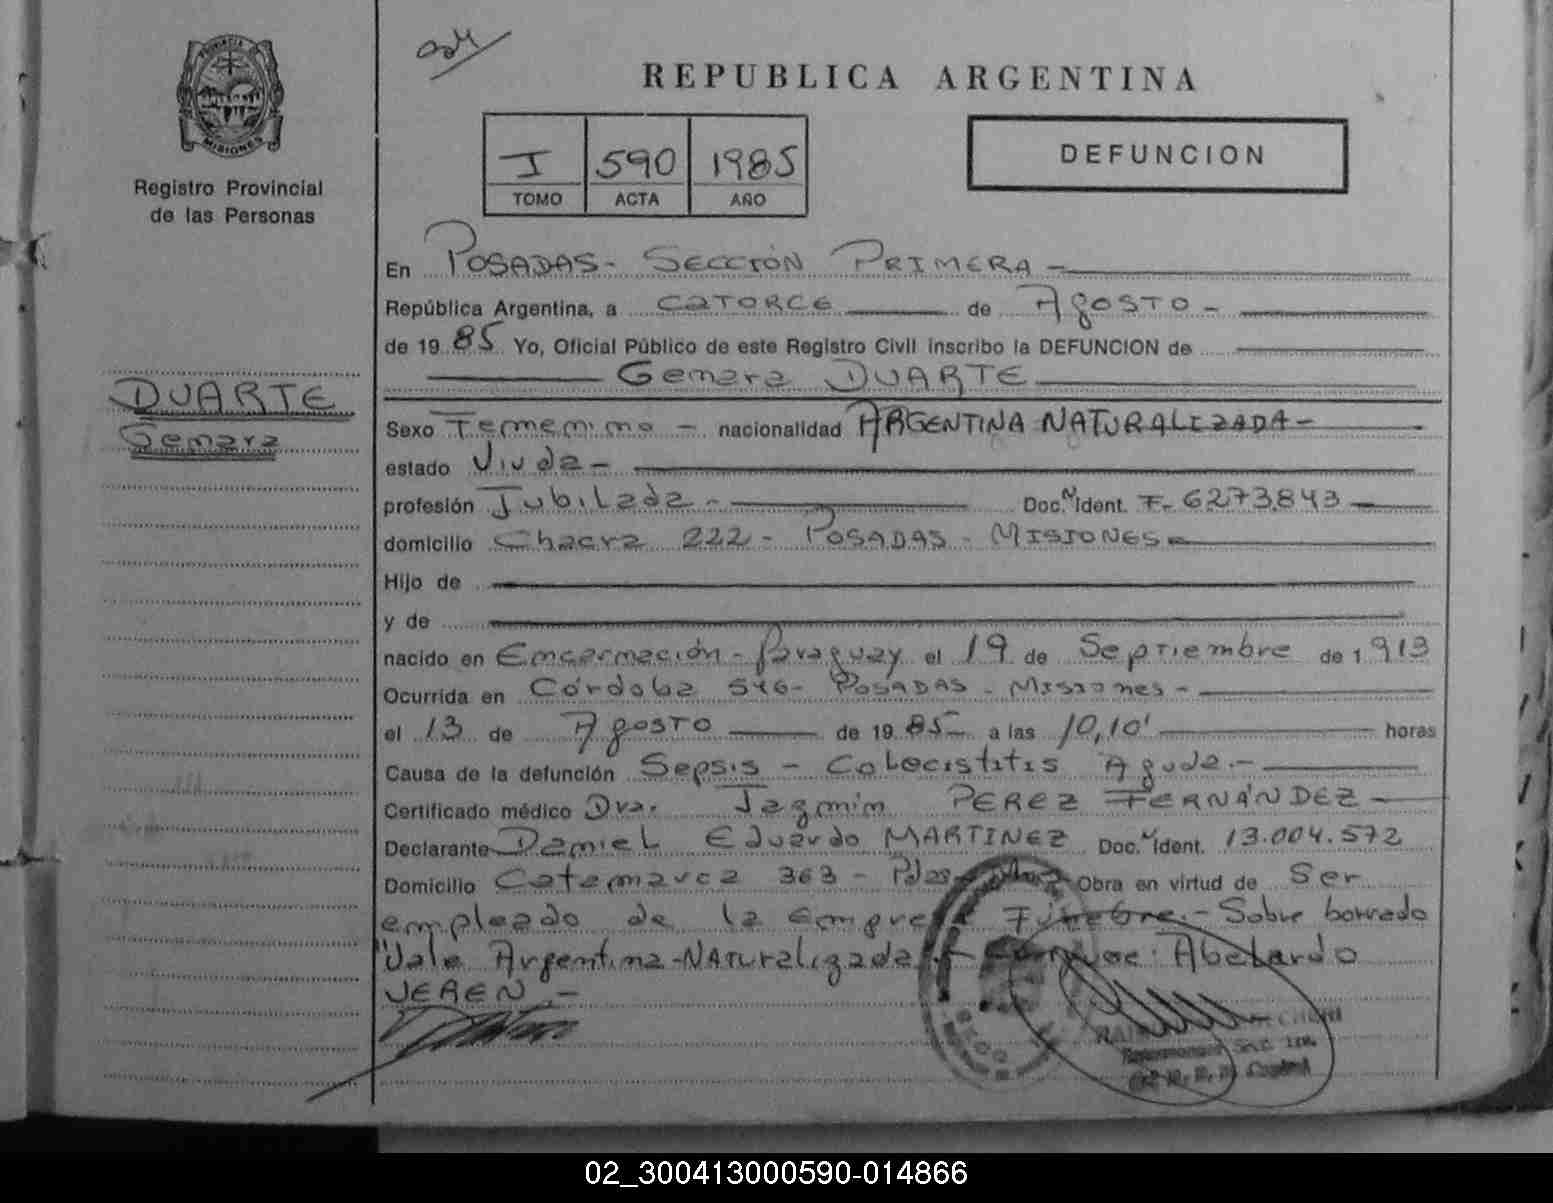 PROVINCIA DE
MISIONES
Registro Provincial
de las Personas
REPUBLICA ARGENTINA
I 590 1985
TOMO ACTA AÑO
DEFUNCION
En POSADAS - SECCIÓN PRIMERA -
República Argentina, a CATORCE de Agosto -
de 19 85 Yo, Oficial Público de este Registro Civil inscribo la DEFUNCION de
Gemara DUARTE
DUARTE
Gemara
Sexo Femenino - nacionalidad ARGENTINA NATURALIZADA -
estado Viuda -
profesión Jubilada - Doc. N Ident. F. 6273.843
domicilio Chacra 222 - POSADAS - MISIONES
Hijo de
y de
nacido en Encarnación - Paraguay el 19 de Septiembre de 1 913
Ocurrida en Córdoba 546 - POSADAS - Misiones -
el 13 de Agosto de 19 85 a las 10,10' horas
Causa de la defunción Sepsis - Colecistitis Aguda. -
Certificado médico Dra. Jazmín PEREZ FERNÁNDEZ
Declarante Daniel Eduardo MARTINEZ Doc. N Ident. 13.004.572
Domicilio Catamarca 363 - Pdas - Obra en virtud de Ser
empleado de la Empresa Fúnebre. - Sobre borrado
"Vale Argentina - Naturalizada Cónyuge: Abelardo
JEREN. -
02_300413000590-014866